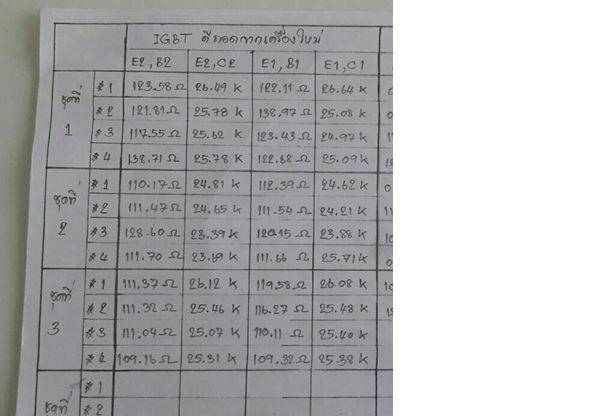 IGBT ดีถอดจากเครื่องใหม่
E2, B2 E2, C2 E1, B1 E1, C1
ชุดที่ 1
#1 123.58 Ω 26.49 k 122.11 Ω 26.64 k
#2 121.81 Ω 25.78 k 138.97 Ω 25.08 k
#3 117.55 Ω 25.62 k 123.43 Ω 24.97 k
#4 138.71 Ω 25.78 k 122.68 Ω 25.09 k
ชุดที่ 2
#1 110.17 Ω 24.81 k 112.39 Ω 24.62 k
#2 111.47 Ω 24.65 k 111.54 Ω 24.21 k
#3 128.60 Ω 23.39 k 120.15 Ω 23.88 k
#4 111.70 Ω 111.66 Ω 25.71 k
ชุดที่ 3
#1 111.37 Ω 26.12 k 119.58 Ω 26.08 k
#2 111.32 Ω 25.46 k 116.27 Ω 25.48 k
#3 111.04 Ω 25.07 k 110.11 Ω 25.40 k
#4 109.16 Ω 25.31 k 109.32 Ω 25.38 k
ชุดที่
#1
#2